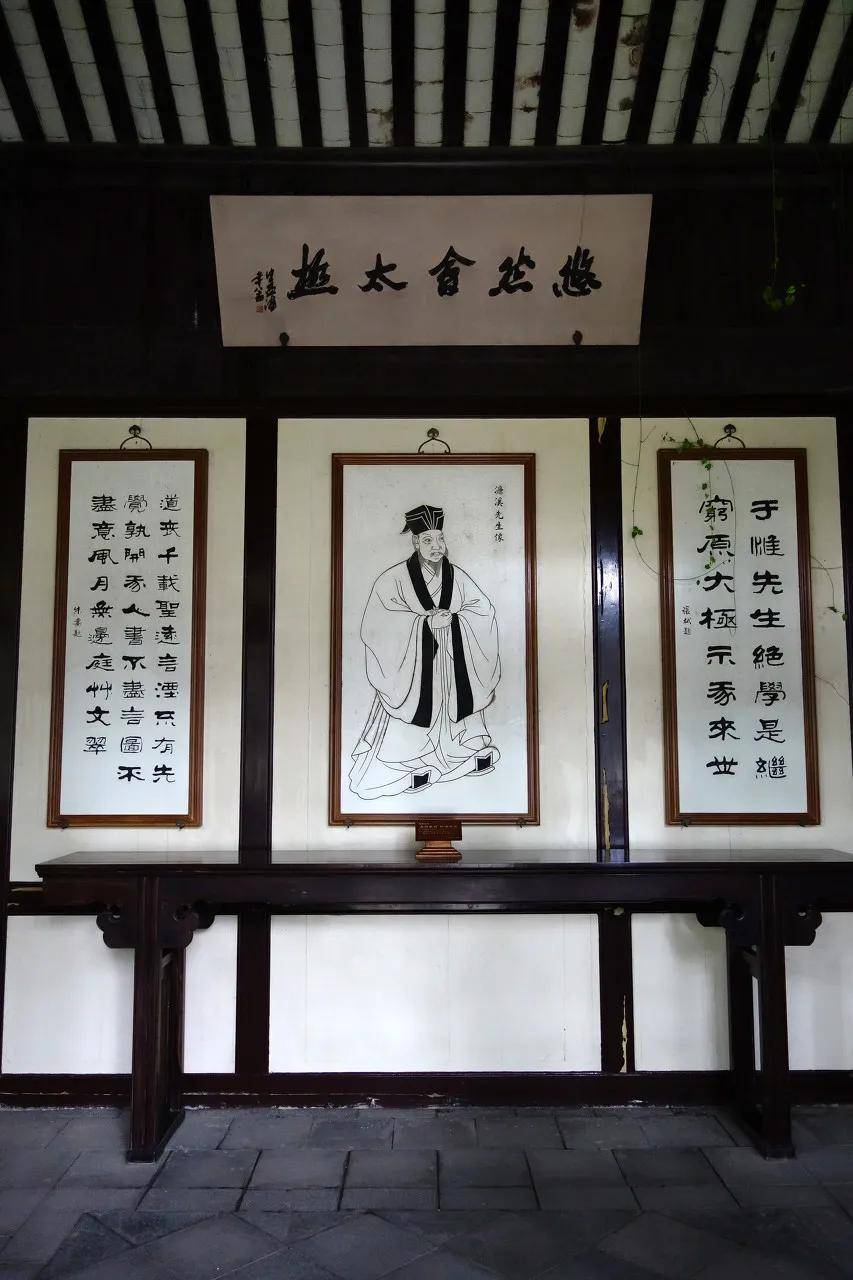 悠然會太極
于惟先生絕學是繼
窮原大極示我來世
張栻題
濂溪先生像
道喪千載聖遠言湮不有先
覺孰開我人書不盡言圖不
盡意風月無邊庭艸交翠
朱熹題